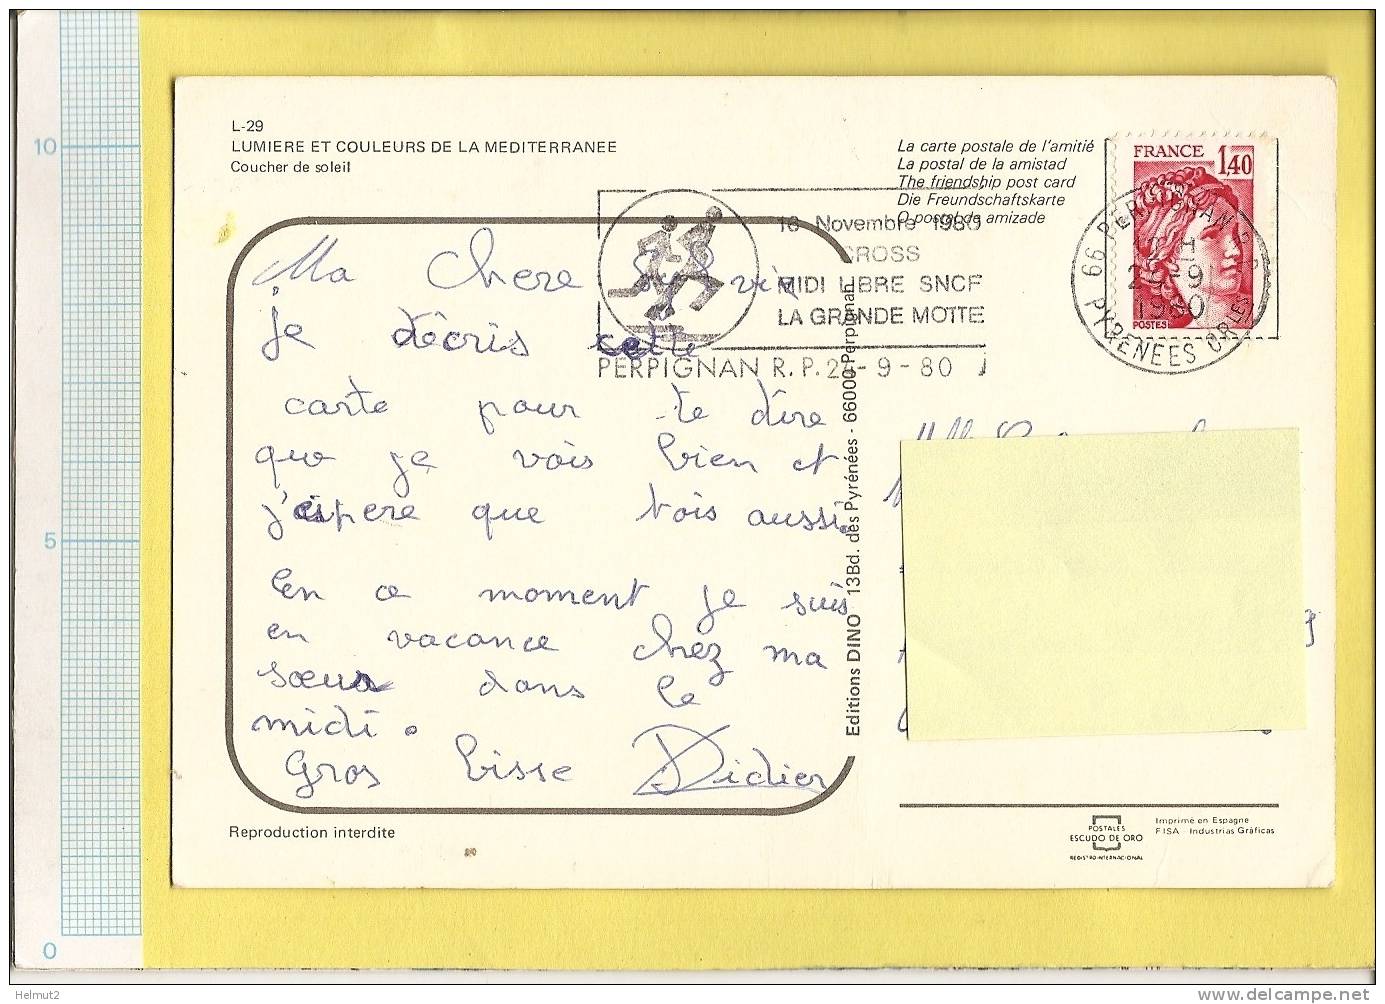 10
5
0
L-29
LUMIERE ET COULEURS DE LA MEDITERRANEE
Coucher de soleil
La carte postale de l'amitié
La postal de la amistad
The friendship post card
Die Freundschaftskarte
O postal da amizade
FRANCE 1,40
POSTES
66 PERPIGNAN
1980
PYRENEES OR LES
16 Novembre 1980
CROSS
MIDI LIBRE SNCF
LA GRANDE MOTTE
PERPIGNAN R.P. 2 -9-80
Ma Chere Sylvie
Je décris cette
carte pour te dire
que je vois bien et
j'éspere que tois aussi.
En ce moment je suis
en vacance chez ma
soeur dans le
midi.
Gros bisse Didier
Editions DINO 13Bd. des Pyrénées - 66000 Perpignan
Reproduction interdite
POSTALES
ESCUDO DE ORO
REGISTRO INTERNACIONAL
Imprimé en Espagne
FISA Industrias Gráficas
Helmut2
www.delcampe.net